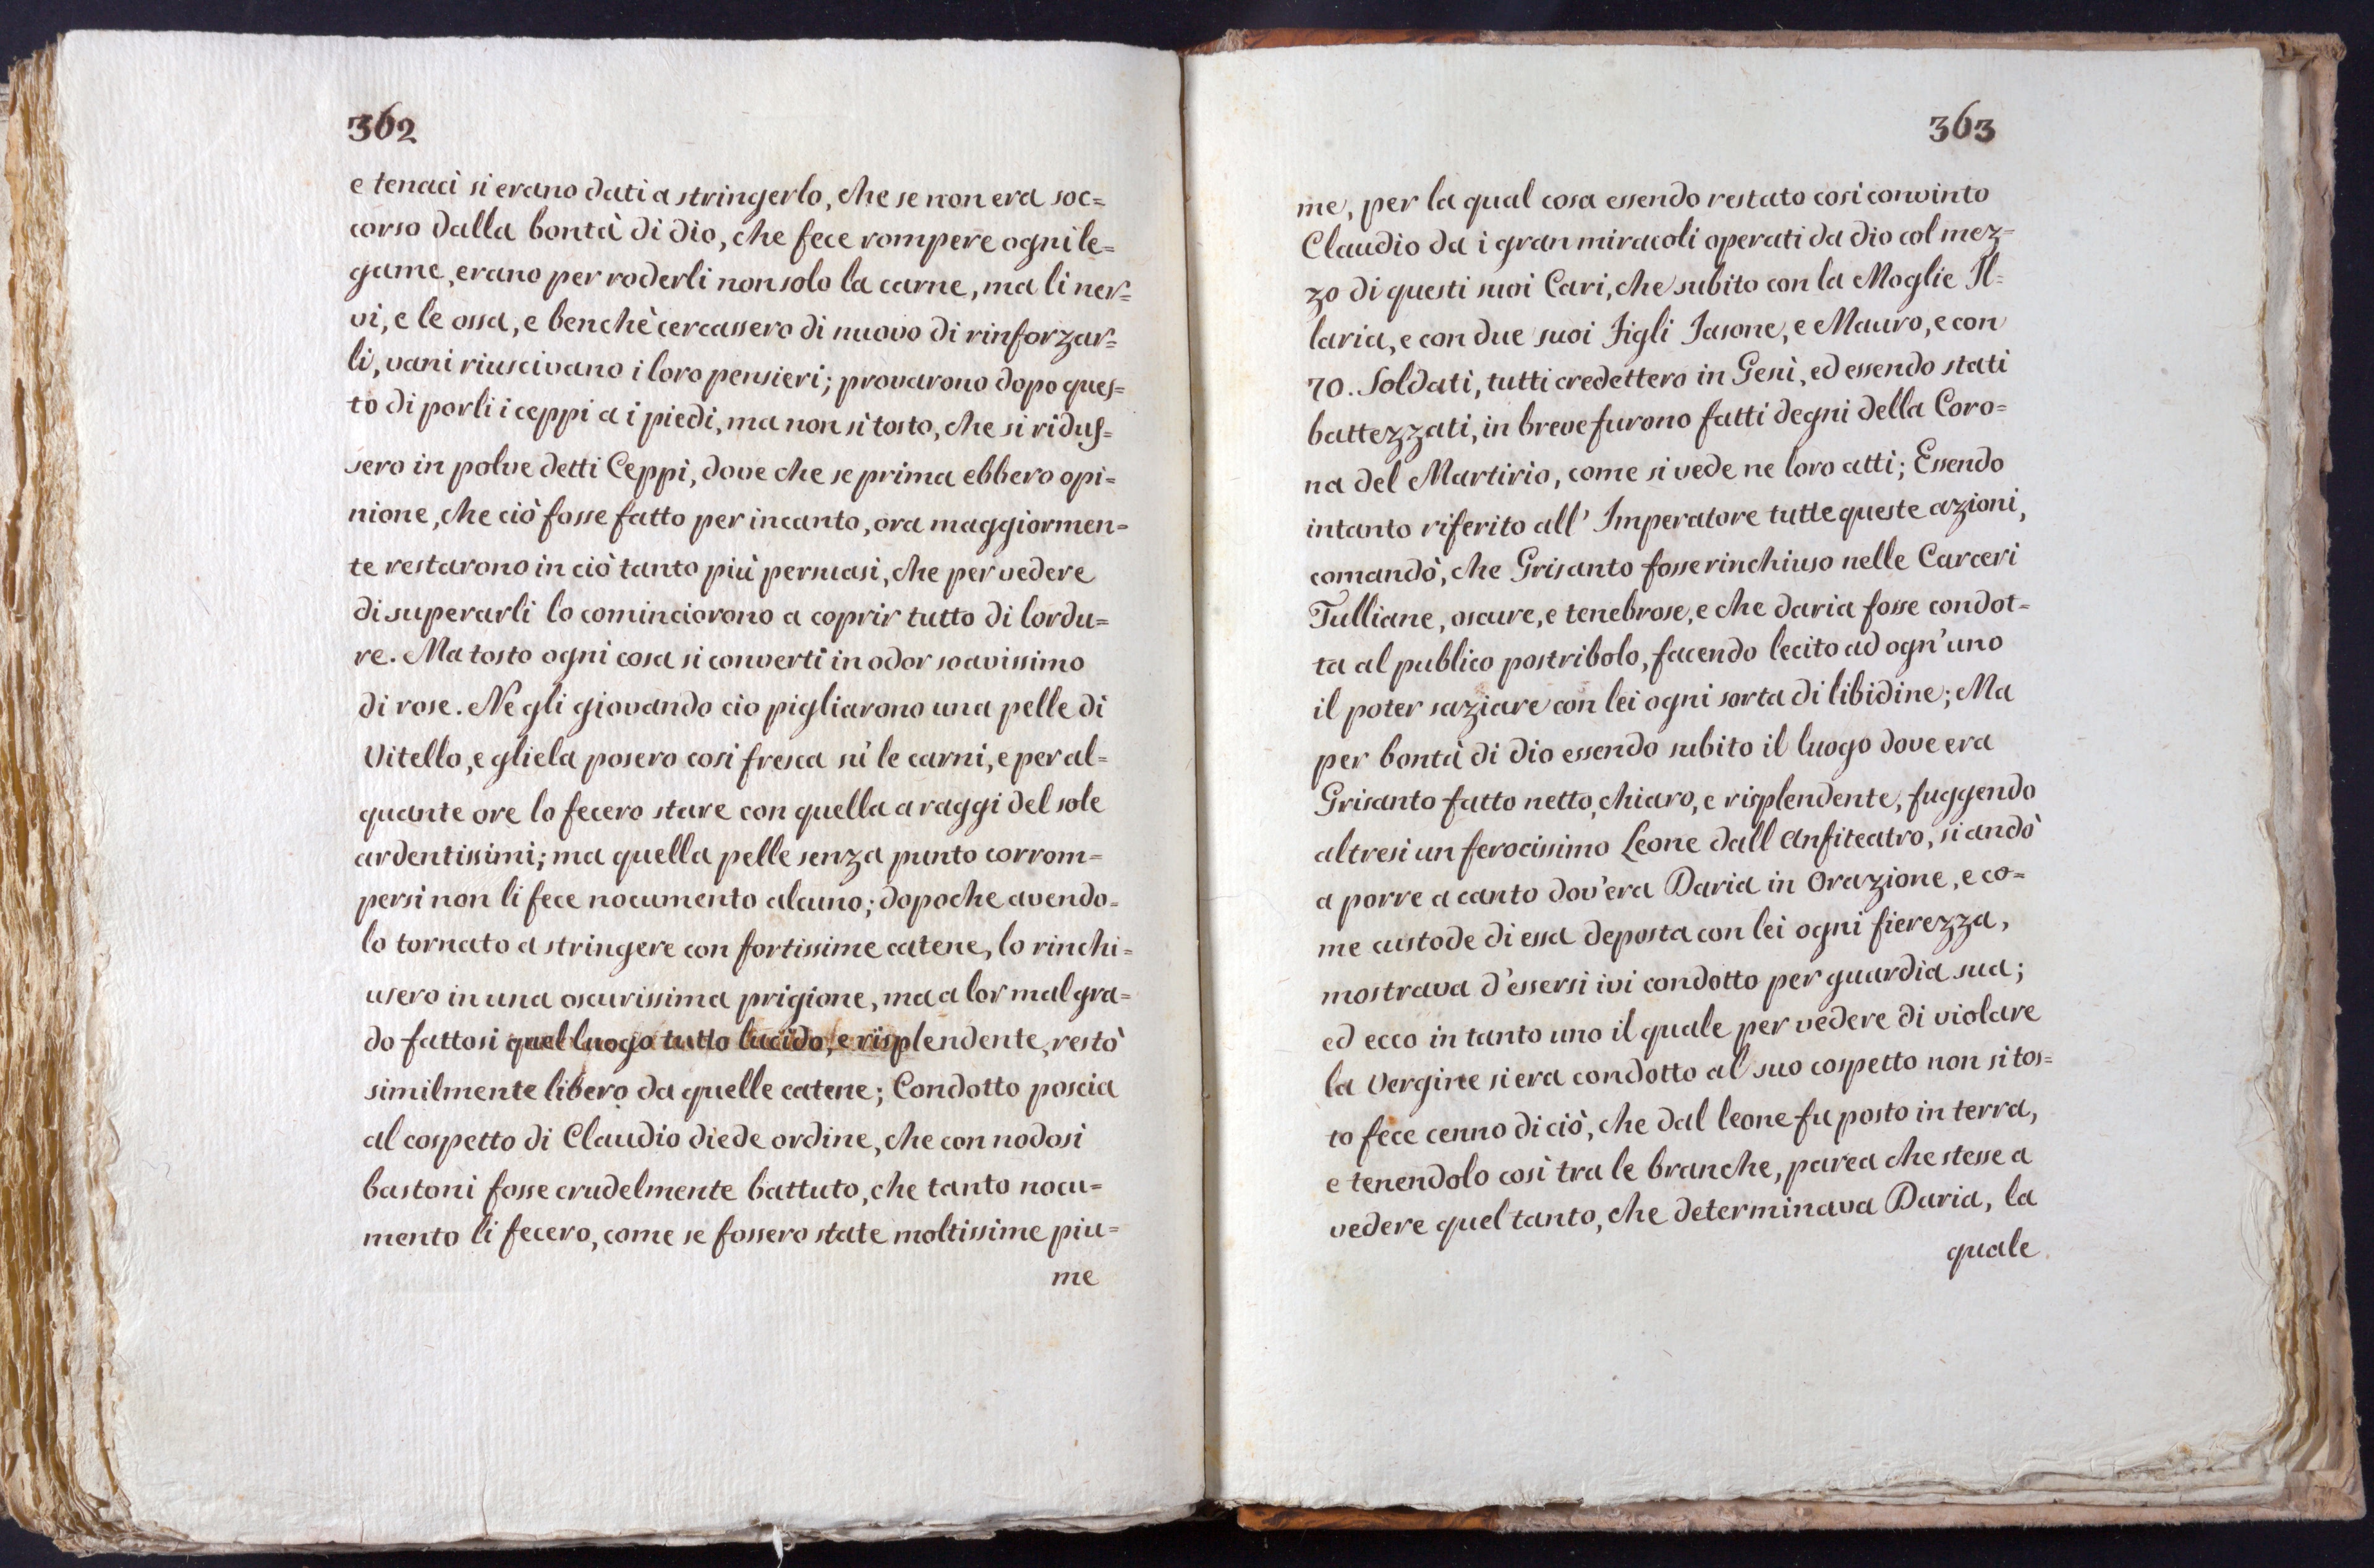 362
e tenaci si erano dati a stringerlo, che se non era soc=
corso dalla bontà di dio, che fece rompere ogni le=
game, erano per roderli non solo la carne, ma li ner=
vi, e le ossa, e benchè cercassero di nuovo di rinforzar=
li, vani riuscivano i loro pensieri; provarono dopo ques=
to di porli i ceppi a i piedi, ma non sì tosto, che si riduf=
sero in polve detti Ceppi, dove che se prima ebbero opi=
nione, che ciò fosse fatto per incanto, ora maggiormen=
te restarono in ciò tanto più persuasi, che per vedere
di superarli lo cominciorono a coprir tutto di lordu=
re. Ma tosto ogni cosa si convertì in odor soavissimo
di rose. Ne gli giovando ciò pigliarono una pelle di
Vitello, e gliela posero così fresca sù le carni, e per al=
quante ore lo fecero stare con quella a raggi del sole
ardentissimi; ma quella pelle senza punto corrom=
persi non li fece nocumento alcuno; dopoche avendo=
lo tornato a stringere con fortissime catene, lo rinchi=
usero in una oscurissima prigione, ma a lor mal gra=
do fattosi quel luogo tutto lucido, e risplendente, restò
similmente libero da quelle catene; Condotto poscia
al cospetto di Claudio diede ordine, che con nodosi
bastoni fosse crudelmente battuto, che tanto nocu=
mento li fecero, come se fossero state moltissime piu=
me
363
me, per la qual cosa essendo restato così convinto
Claudio da i gran miracoli operati da dio col mez=
zo di questi suoi Cari, che subito con la Moglie Il=
laria, e con due suoi Figli Iasone, e Mauro, e con
70. Soldati, tutti credettero in Gesù, ed essendo stati
battezzati, in breve furono fatti degni della Coro=
na del Martirio, come si vede ne loro atti; Essendo
intanto riferito all' Imperatore tutte queste azioni,
comandò, che Grisanto fosse rinchiuso nelle Carceri
Tulliane, oscure, e tenebrose, e che daria fosse condot=
ta al publico postribolo, facendo lecito ad ogn'uno
il poter saziare con lei ogni sorta di libidine; Ma
per bontà di dio essendo subito il luogo dove era
Grisanto fatto netto, chiaro, e risplendente, fuggendo
altresì un ferocissimo Leone dall Anfiteatro, si andò
a porre a canto dov'era Daria in Orazione, e co=
me custode di essa deposta con lei ogni fierezza,
mostrava d'essersi ivi condotto per guardia sua;
ed ecco in tanto uno il quale per vedere di violare
la Vergine si era condotto al suo cospetto non sì tos=
to fece cenno di ciò, che dal leone fu posto in terra,
e tenendolo così tra le branche, parea che stesse a
vedere quel tanto, che determinava Daria, la
quale